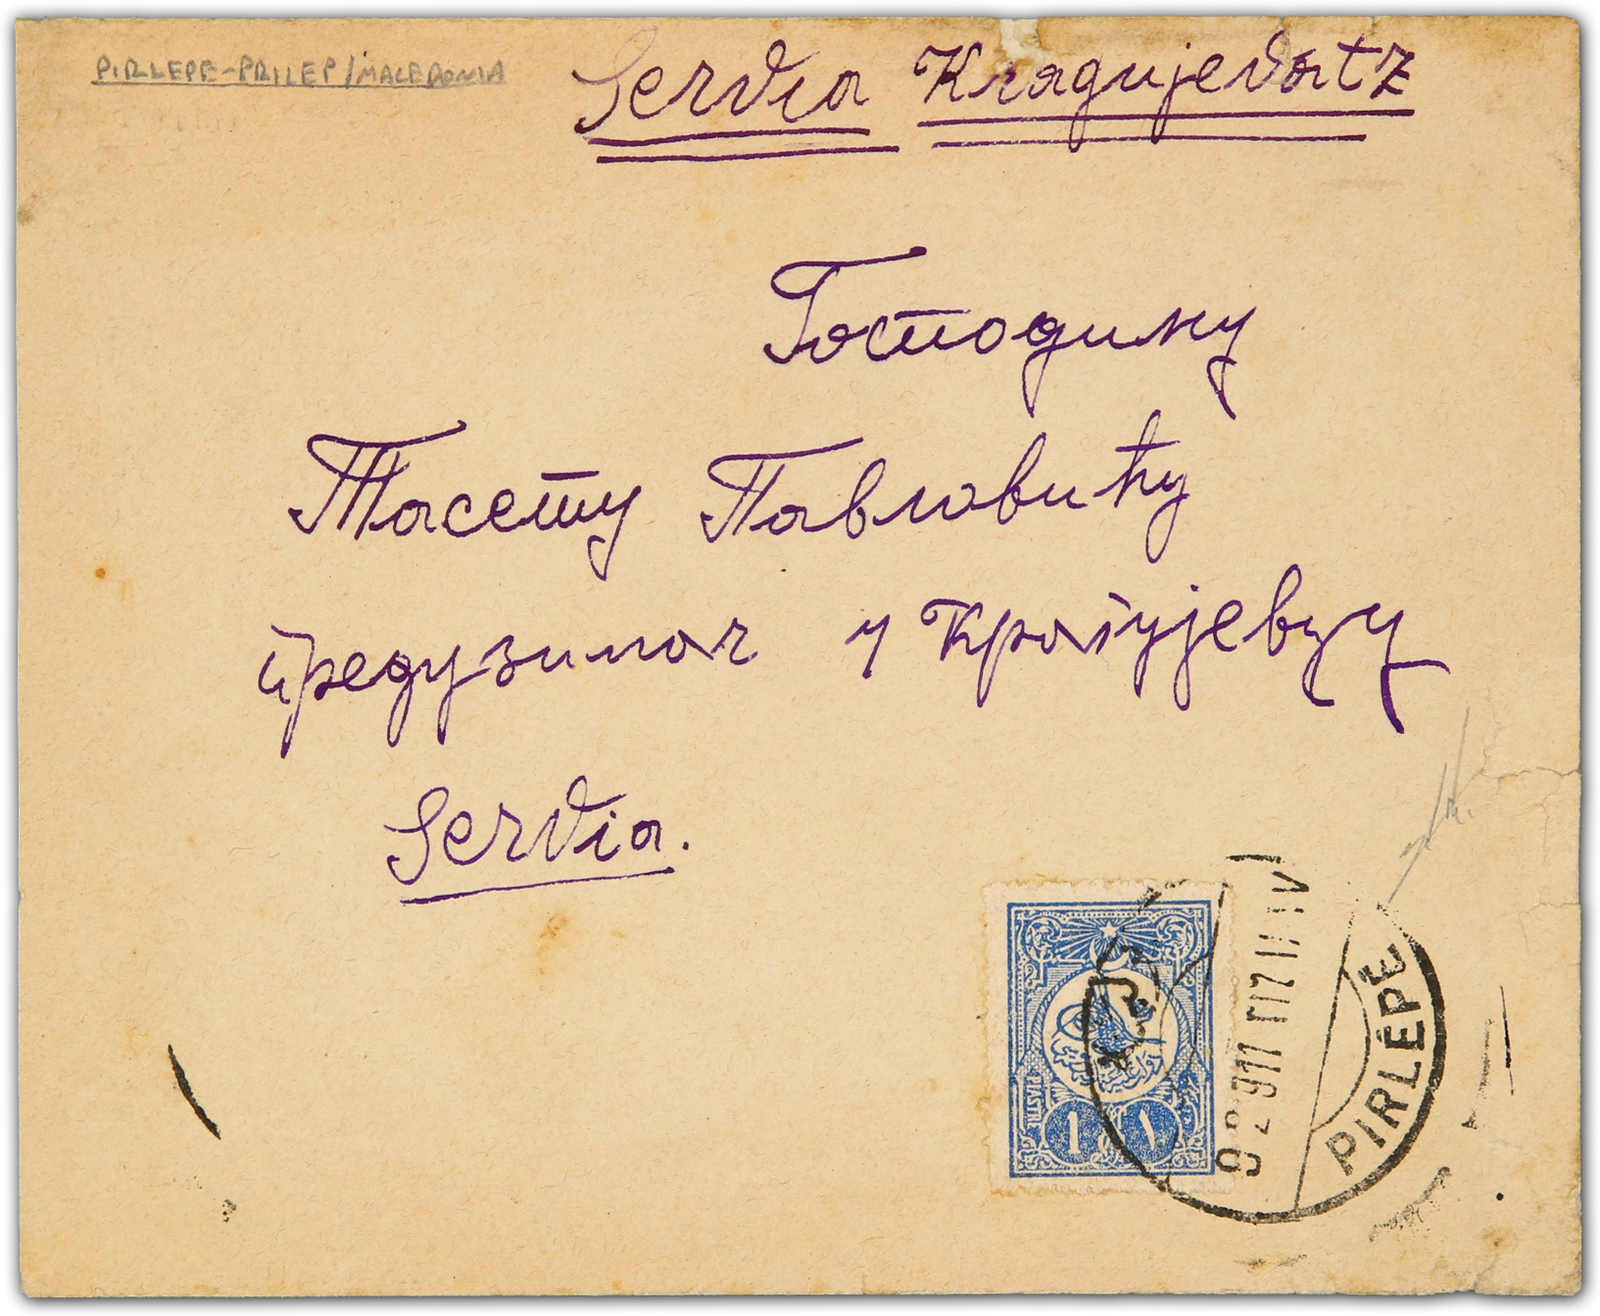 PIRLEPE-PRILEP/MACEDONIA
Servia Kragujevatz
Господину
Тасету Павловићу
предузимач у Крагујевцу
Servia.
PIASTRE
1 ١
9 2 911
PIRLÉPÉ